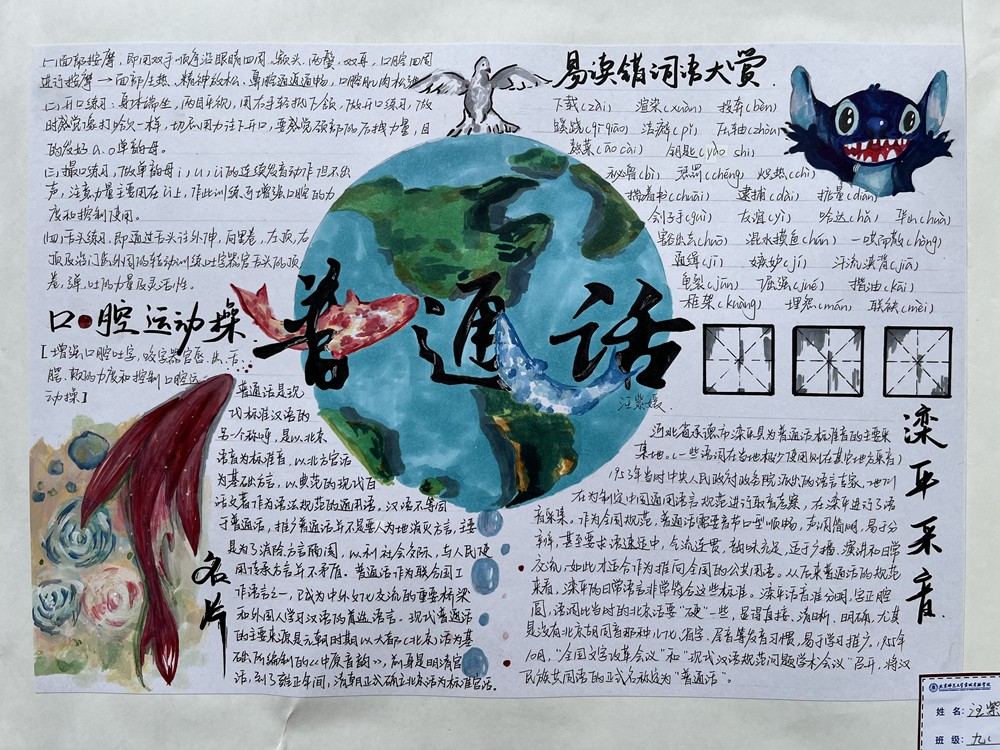 (一)面部按摩，即用双手顺序沿眼睛四周、额头、两鬓、双耳、口腔四周
进行按摩→面部生热、精神放松、鼻腔通道通畅，口腔肌肉松弛
(二)开口练习：身体端坐，两目平视，用右手轻抵下颌，做开口练习，做
时感觉像打哈欠一样，切忌用力往下开口，要感觉颌部的后拽力量，目
的发好a、o单韵母。
(三)撮口练习，做单韵母i，u，ü的连续发音动作但不出
声，注意力量主要用在ü上，作此训练可增强口腔的力
度和控制使用。
(四)舌头练习，即通过舌头往外伸，向里卷，左顶，右
顶及沿门齿外围的转动训练吐字器官舌头的顶、
卷、弹、吐的力量及灵活性。
口腔运动操
[增强口腔吐字，咬字器官唇、齿、舌、
腭、颊的力度和控制口腔运
动操]
易读错词语大赏
下载(zài) 渲染(xuàn) 投奔(bèn)
蹊跷(qī qiāo) 洁癖(pǐ) 压轴(zhòu)
熬菜(āo cài) 钥匙(yào shi)
秘鲁(bì) 惩罚(chéng) 炽热(chì)
揣着书(chuāi) 逮捕(dài) 掂量(diān)
刽子手(guì) 友谊(yì) 哈达(hǎ) 华山(huà)
豁出去(huō) 混水摸鱼(hún) 一哄而散(hòng)
通缉(jī) 嫉妒(jí) 汗流浃背(jiā)
龟裂(jūn) 揩油(kāi)
框架(kuàng) 埋怨(mán) 联袂(mèi)
普通话
汪紫媛
滦平采音
河北省承德市滦平县为普通话标准音的主要采
集地。(一些语词在当地极少使用则在其它地点采音)
1953年当时中央人民政府政务院派出的语言专家，他们
在为制定中国通用语言规范进行取音考察，在滦平进行了语
音采集。作为全国规范，普通话需要音节口型顺畅，声调简明，易于分
辨，甚至要求语速适中，气流连贯，韵味充足，适于广播、演讲和日常
交流，如此才适合作为推向全国的公共用语。从后来普通话的规范
来看，滦平的日常语言非常符合这些标准。滦平话音准分明，字正腔
圆，语调比当时的北京话要“硬”一些，显得直接、清晰、明确，尤其
是没有北京胡同音那种儿化、省字、尾音等发音习惯，易于学习推广，1955年
10月，“全国文字改革会议”和“现代汉语规范问题学术会议”召开，将汉
民族共同语的正式名称定为“普通话”。
名片
普通话是现
代标准汉语的
另一个称呼，是以北京
语音为标准音，以北方官话
为基础方言，以典范的现代白
话文著作为语法规范的通用语，汉语不等同
于普通话，推广普通话并不是要人为地消灭方言，主要
是为了消除方言隔阂，以利社会交际，与人民使
用传承方言并不矛盾。普通话作为联合国工
作语言之一，已成为中外文化交流的重要桥梁
和外国人学习汉语的首选语言。现代普通话
的主要来源是元朝时期以大都(北京)话为基
础所编制的《中原音韵》，前身是明清官
话，到了雍正年间，清朝正式确立北京话为标准官话。
姓 名：汪紫
班 级：九